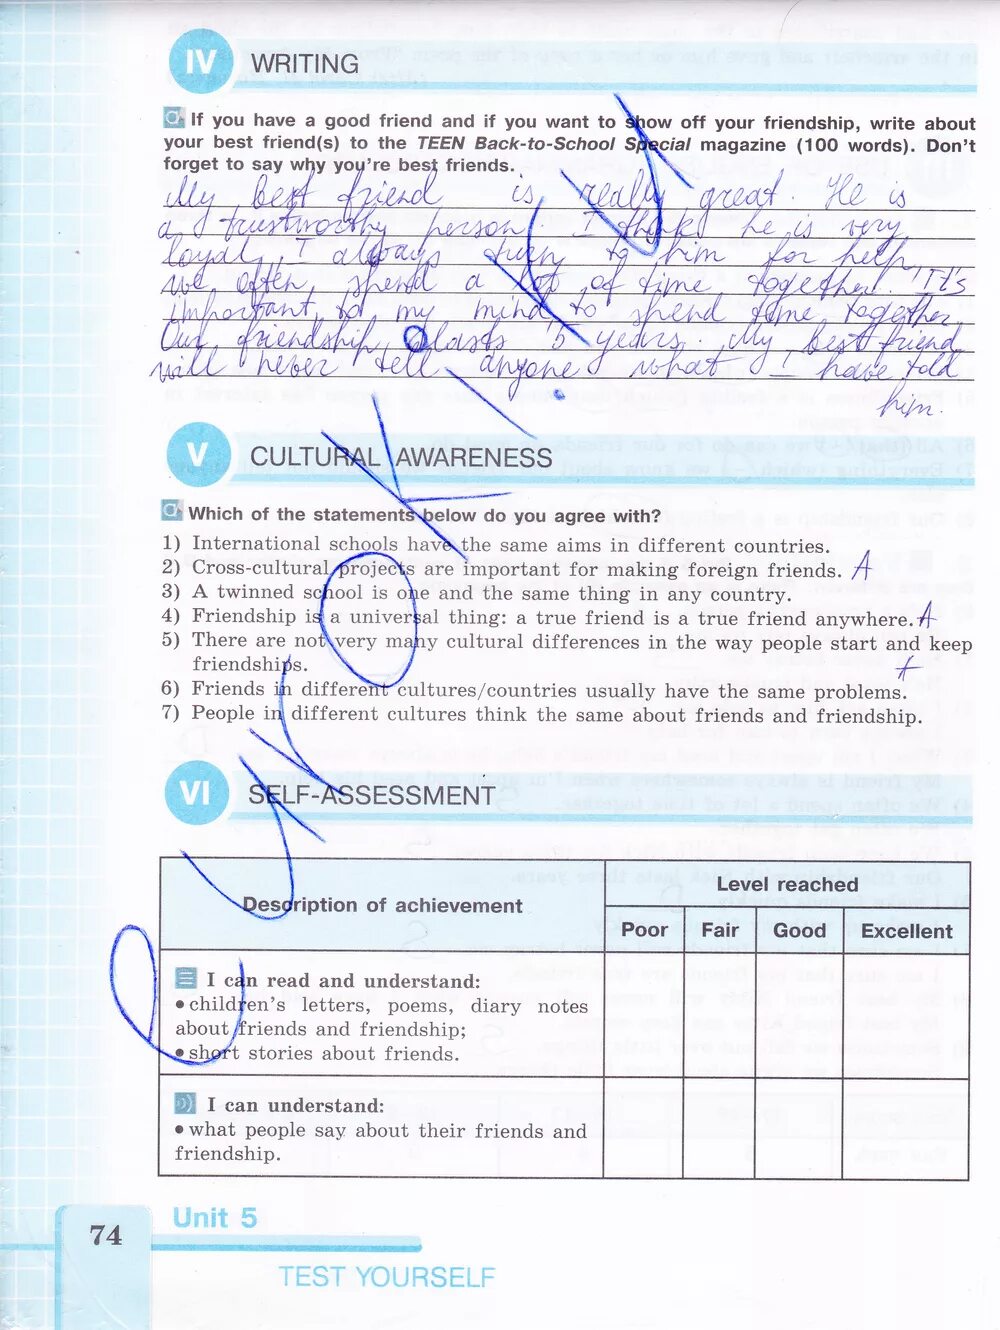 IV WRITING
If you have a good friend and if you want to show off your friendship, write about
your best friend(s) to the TEEN Back-to-School Special magazine (100 words). Don't
forget to say why you're best friends.
My best friend is really great. He is
a trustworthy person. I think he is very
loyal, I always turn to him for help,
we often spend a lot of time together. It's
important to my mind, to spend time together
Our friendship lasts 5 years. My best friend
will never tell anyone what I have told
him.
V CULTURAL AWARENESS
Which of the statements below do you agree with?
1) International schools have the same aims in different countries.
2) Cross-cultural projects are important for making foreign friends. A
3) A twinned school is one and the same thing in any country.
4) Friendship is a universal thing: a true friend is a true friend anywhere. A
5) There are not very many cultural differences in the way people start and keep
friendships.
6) Friends in different cultures/countries usually have the same problems.
7) People in different cultures think the same about friends and friendship.
VI SELF-ASSESSMENT
Description of achievement
Level reached
Poor Fair Good Excellent
I can read and understand:
• children's letters, poems, diary notes
about friends and friendship;
• short stories about friends.
I can understand:
• what people say about their friends and
friendship.
74 Unit 5
TEST YOURSELF